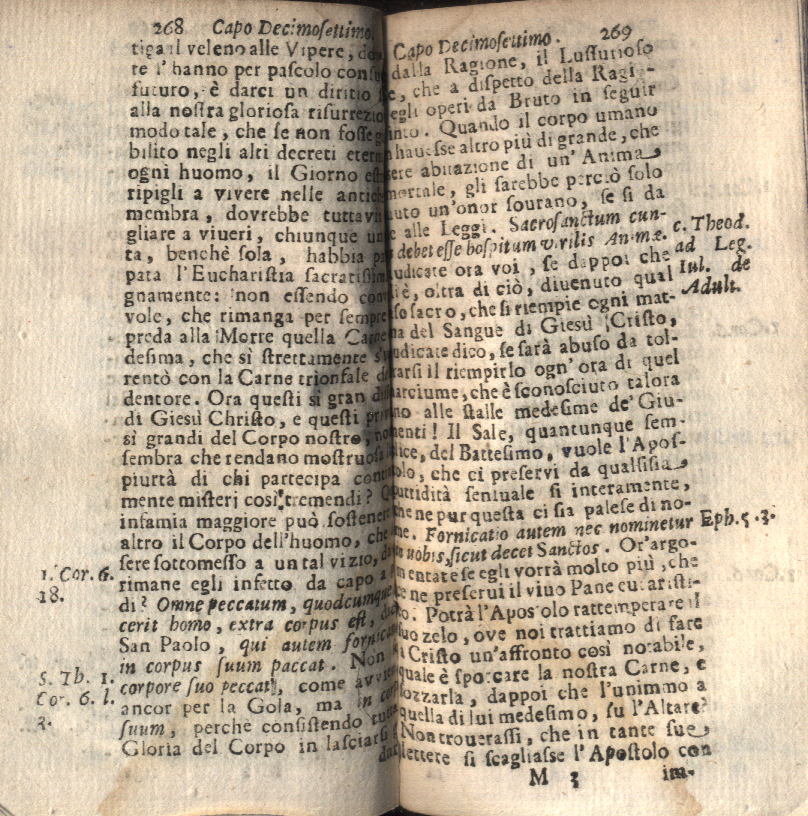 268 Capo Decimosettimo.
tiga il veleno alle Vipere,
re l'hanno per pascolo con
futuro, è darci un diritto
alla nostra gloriosa risurrezio
modo tale, che se non fosse
bilito negli alti decreti eter
ogni huomo, il Giorno
ripigli a vivere nelle antic
membra, dovrebbe tuttavi
gliare a viueri, chiunque un
ta, benchè sola, habbia
pata l'Eucharistia sacratissim
gnamente: non essendo con
vole, che rimanga per sempre
preda alla Morre quella Carne
desima, che sì strettamente
rentò con la Carne trionfale
dentore. Ora questi sì gran
di Giesù Christo, e questi
sì grandi del Corpo nostro,
sembra che rendano mostruos
piurtà di chi partecipa conti
mente misterj così tremendi?
infamia maggiore può sostener
altro il Corpo dell'huomo, che
sere sottomesso a un tal vizio,
1. Cor. 6. rimane egli infetto da capo a
18. di? Omne peccatum, quodcumque
cerit homo, extra corpus est,
San Paolo, qui autem fornica
in corpus suum paccat. Non
S. Th. 1. corpore suo peccat, come
Cor. 6. l. ancor per la Gola, ma in cor
3. suum, perchè consistendo tutta
Gloria del Corpo in lasciarsi
Capo Decimosettimo. 269
dalla Ragione, il Lussurioso
e, che a dispetto della Ragi-
egli operi da Bruto in seguir
into. Quando il corpo umano
hauesse altro più di grande, che
sere abitazione di un' Anima
mortale, gli sarebbe perciò solo
uto un'onor sourano, se si dà
e alle Leggi. Sacrosanctum cun-
debet esse hospitum virilis Animæ. c. Theod.
udicate ora voi, se dappoi che ad Leg.
i è, oltra di ciò, diuenuto qual Iul. de
so sacro, che si riempie ogni mat- Adult.
na del Sangue di Giesù Cristo,
udicate dico, se sarà abuso da tol-
rarsi il riempirlo ogn'ora di quel
marciume, che è sconosciuto talora
no alle stalle medesime de' Giu-
menti! Il Sale, quantunque sem-
lice, del Battesimo, vuole l'Apos-
olo, che ci preservi da qualsisia
puttidità sensuale sì interamente,
he ne pur questa ci sia palese di no-
me. Fornicatio autem nec nominetur Eph. 5. 3.
in vobis, sicut decet Sanctos. Or'argo-
mentate se egli vorrà molto più, che
ne preserui il viuo Pane eucaristi-
co. Potrà l'Apostolo rattemperare il
uo zelo, ove noi trattiamo di fare
i Cristo un'affronto così notabile,
quale è sporcare la nostra Carne, e
sozzarla, dappoi che l'unimmo a
quella di lui medesimo, su l'Altare?
Non trouerassi, che in tante sue
lettere si scagliasse l'Apostolo con
M 3 im-